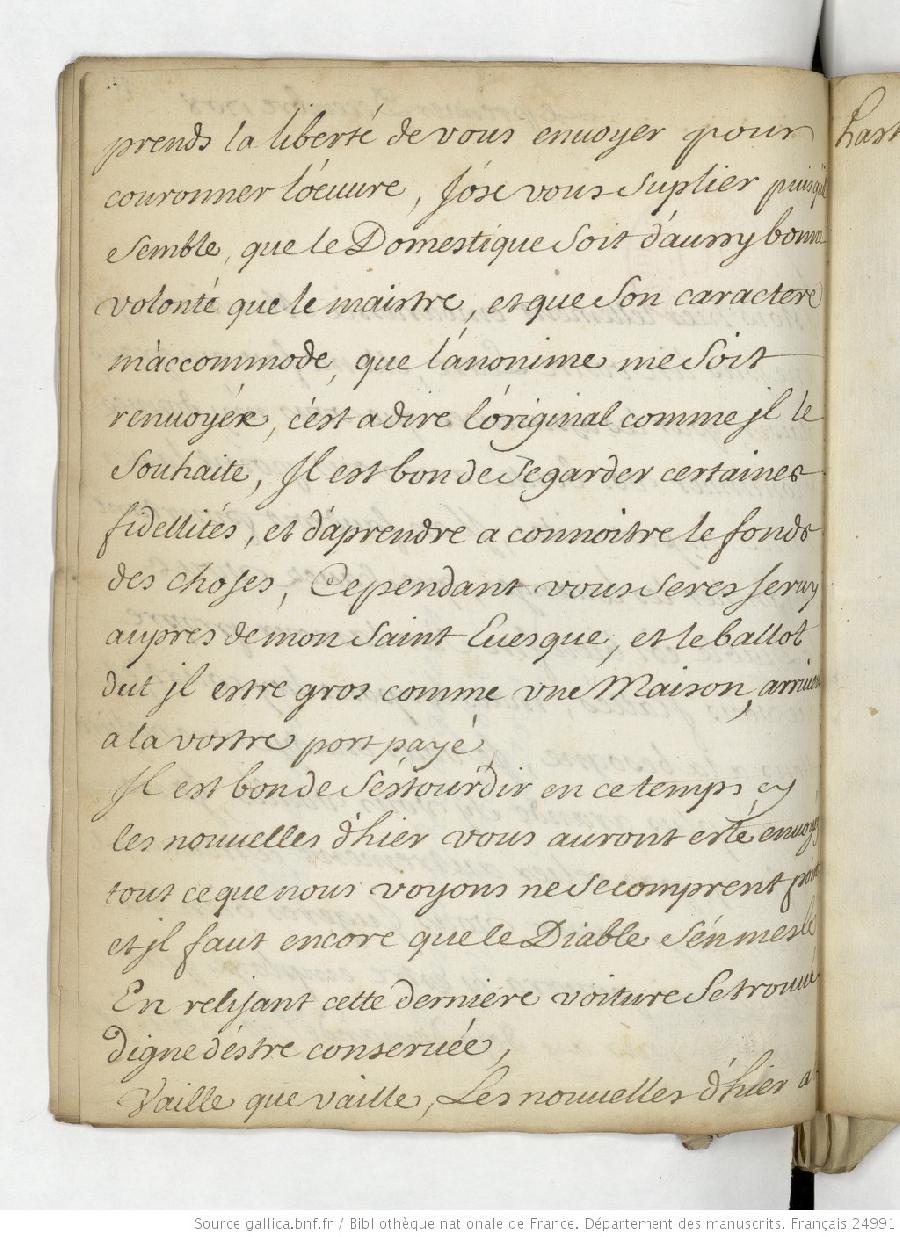 prends la liberté de vous enuoyer pour
couronner lóeuure, Jóse vous suplier puisqu'il
semble, que le Domestique soit d'aussy bonne
volonté que le maistre, et que son caractere
m'accommode, que l'anonime me soit
renuoyée, c'est a dire l'original comme jl le
souhaite, Jl est bon de se garder certaines
fidellités, et d'aprendre a connoitre le fonds
des choses, Cependant vous seres seruy
aupres de mon saint Euesque, et le ballot
dut jl estre gros comme vne Maison, arriuera
a la vostre port payé,
Jl est bon de s'éstourdir en ce temps cy
les nouuelles d'hier vous auront esté enuoyées
tout ce que nous voyons ne se comprent point
et jl faut encore que le Diable s'en mesle
En relisant cette derniére voiture se trouue
digne d'éstre conseruée,
Vaille que vaille, Les nouuelles d'hier
hast
Source gallica.bnf.fr / Bibliothèque nationale de France. Département des manuscrits. Français 24991